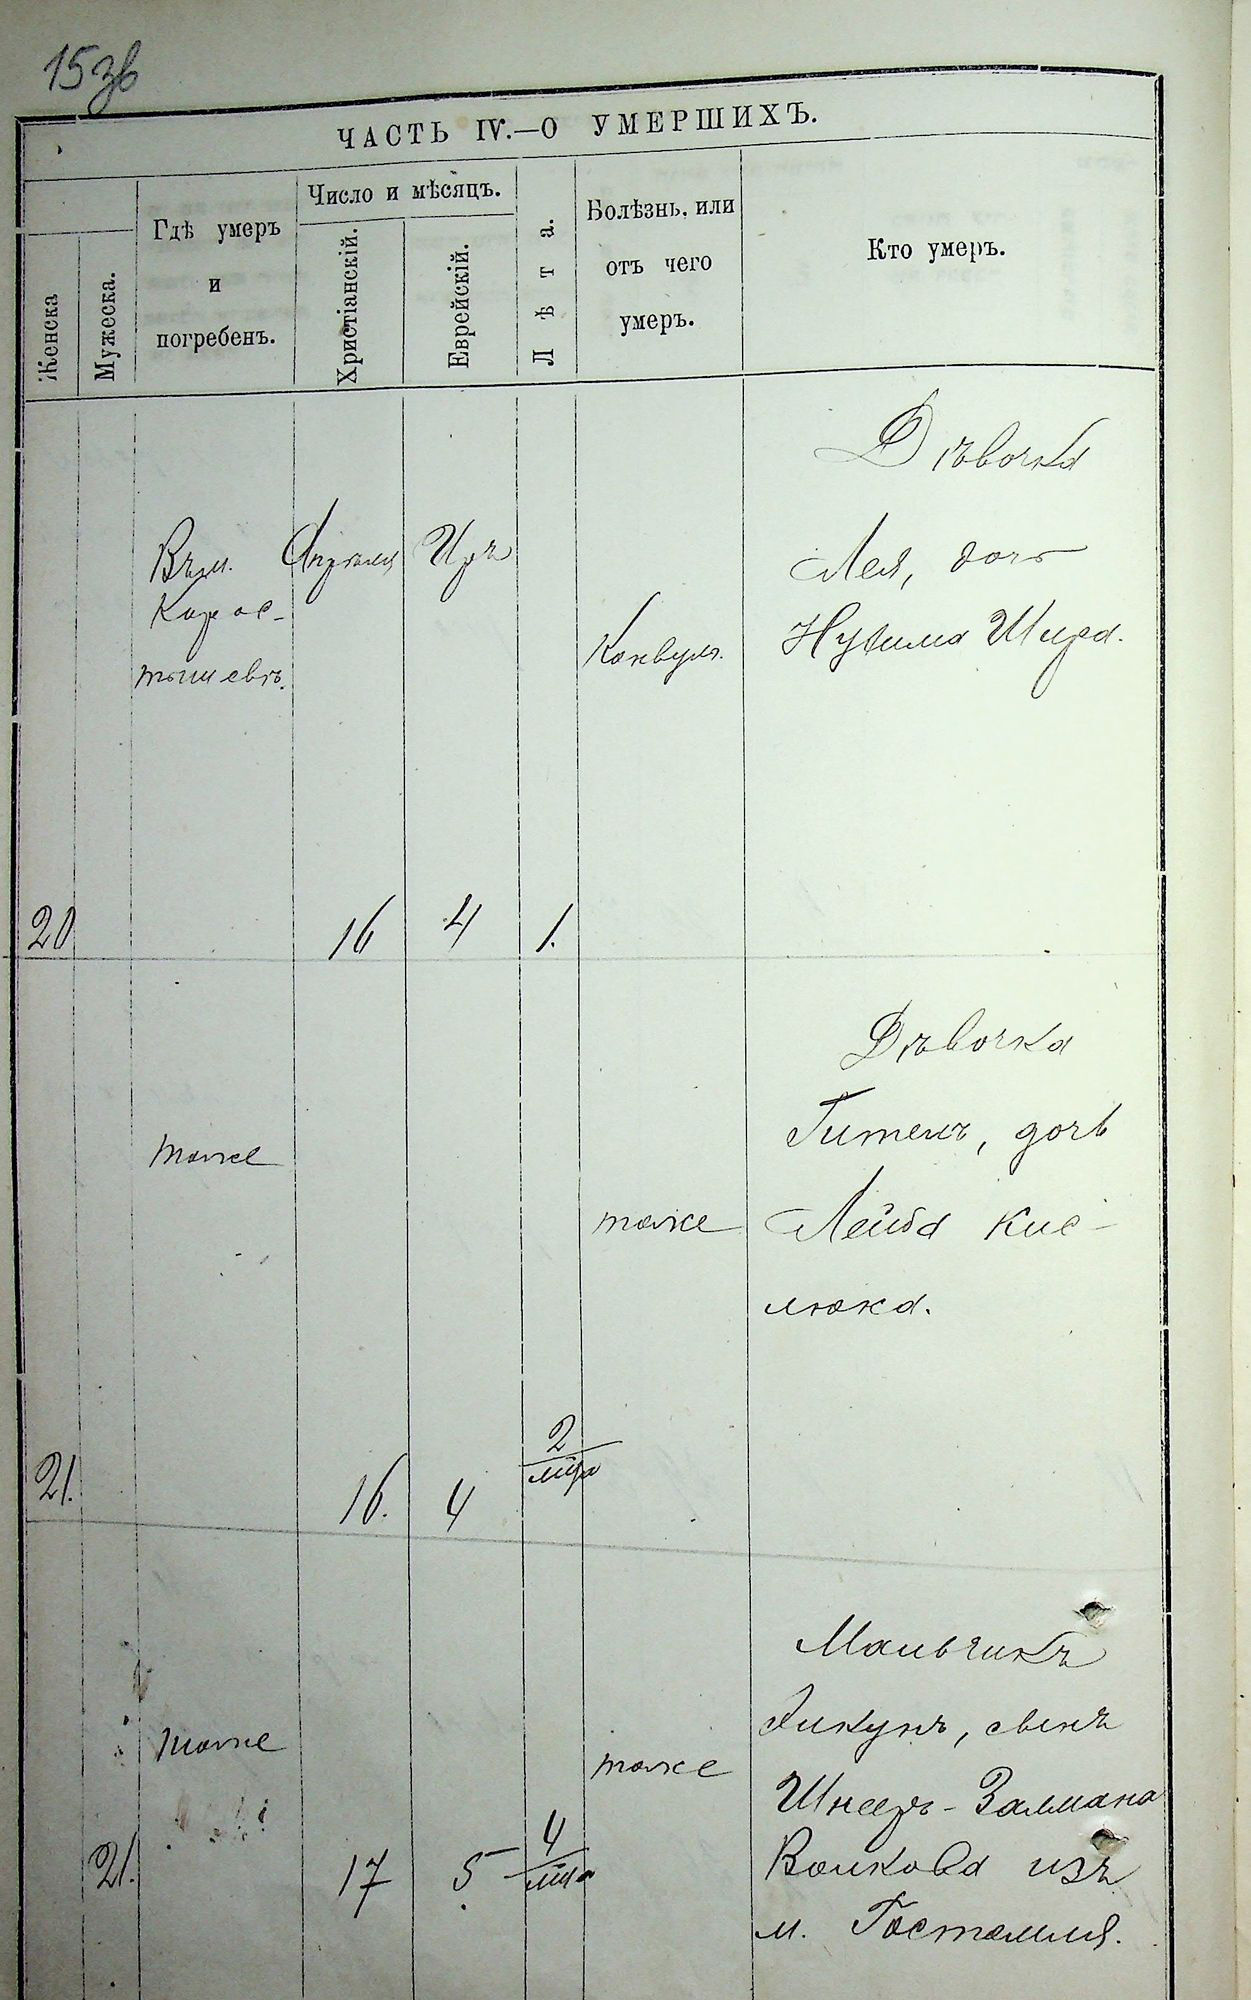 153б
ЧАСТЬ IV.—О УМЕРШИХЪ.
Женска
Мужеска.
Гдѣ умеръ
и
погребенъ.
Число и мѣсяцъ.
Христіанскій.
Еврейскій.
Лѣта.
Болѣзнь, или
отъ чего
умеръ.
Кто умеръ.
Дѣвочка
Въ м. Апрѣля Иръ
Лея, дочь
Корос-
Нухима Шира.
Конвул.
тышевъ.
20 16 4 1.
Дѣвочка
Гитель, дочь
тоже
тоже Лейба Кис-
люка.
2
21. 16. 4 мца
Мальчикъ
сынъ
тоже
тоже
Шнееръ-Залмана
4
21. 17 5 мца
Волкова изъ
м. Гостомля.